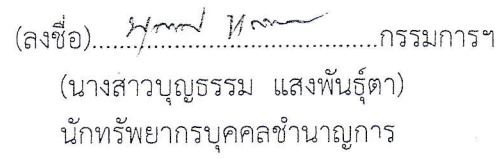 (ลงชื่อ)........................................กรรมการฯ
(นางสาวบุญธรรม แสงพันธุ์ตา)
นักทรัพยากรบุคคลชำนาญการ